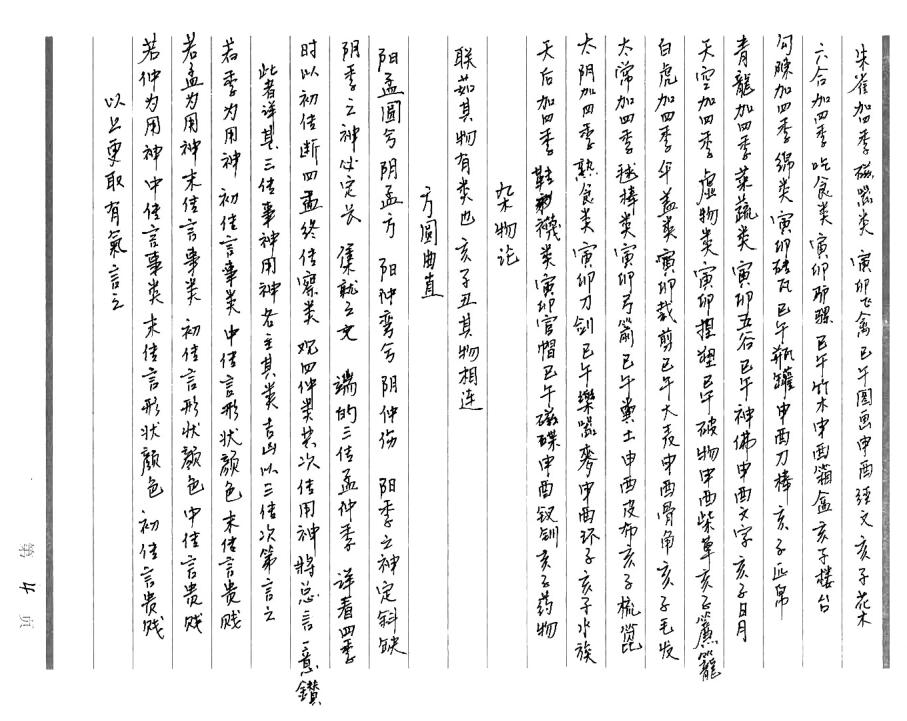 朱雀加四季磁器类 寅卯飞禽巳午图画申酉经文亥子花木
六合加四季吃食类寅卯印骡巳午竹木申酉箱盒亥子楼台
勾陳加四季绵类寅卯砖瓦巳午瓶罐申酉刀棒亥子疋帛
青龍加四季菜蔬类寅卯五谷巳午神佛申酉文字亥子日月
天空加四季虚物类寅卯捏塑巳午破物申酉柴草亥子簾籠
白虎加四季伞盖类寅卯裁剪巳午大麦申酉骨角亥子毛发
太常加四季毬棒类寅卯弓箭巳午粪土申酉皮布亥子梳篦
太阴加四季熟食类寅卯刀劍巳午樂器麥申酉环子亥子水族
天后加四季鞋襪类寅卯官帽巳午磁碟申酉釵釧亥子药物
杂物论
联茹其物有类也亥子丑其物相连
方圆曲直
阳孟圆兮阴孟方 阳仲弯兮阴仲伤 阳季之神定斜缺
阴季之神必定长 集就之文 端的三传孟仲季 详看四季
时以初传断四孟终传察类 观四仲类其次传用神將总言一意鑚
此者详其三传事神用神各主其类吉凶以三传次第言之
若季为用神 初传言事类中传言形状颜色末传言贵贱
若孟为用神末传言事类 初传言形状颜色中传言贵贱
若仲为用神中传言事类 末传言形状颜色初传言贵贱
以上更取有氣言之
第 4 页